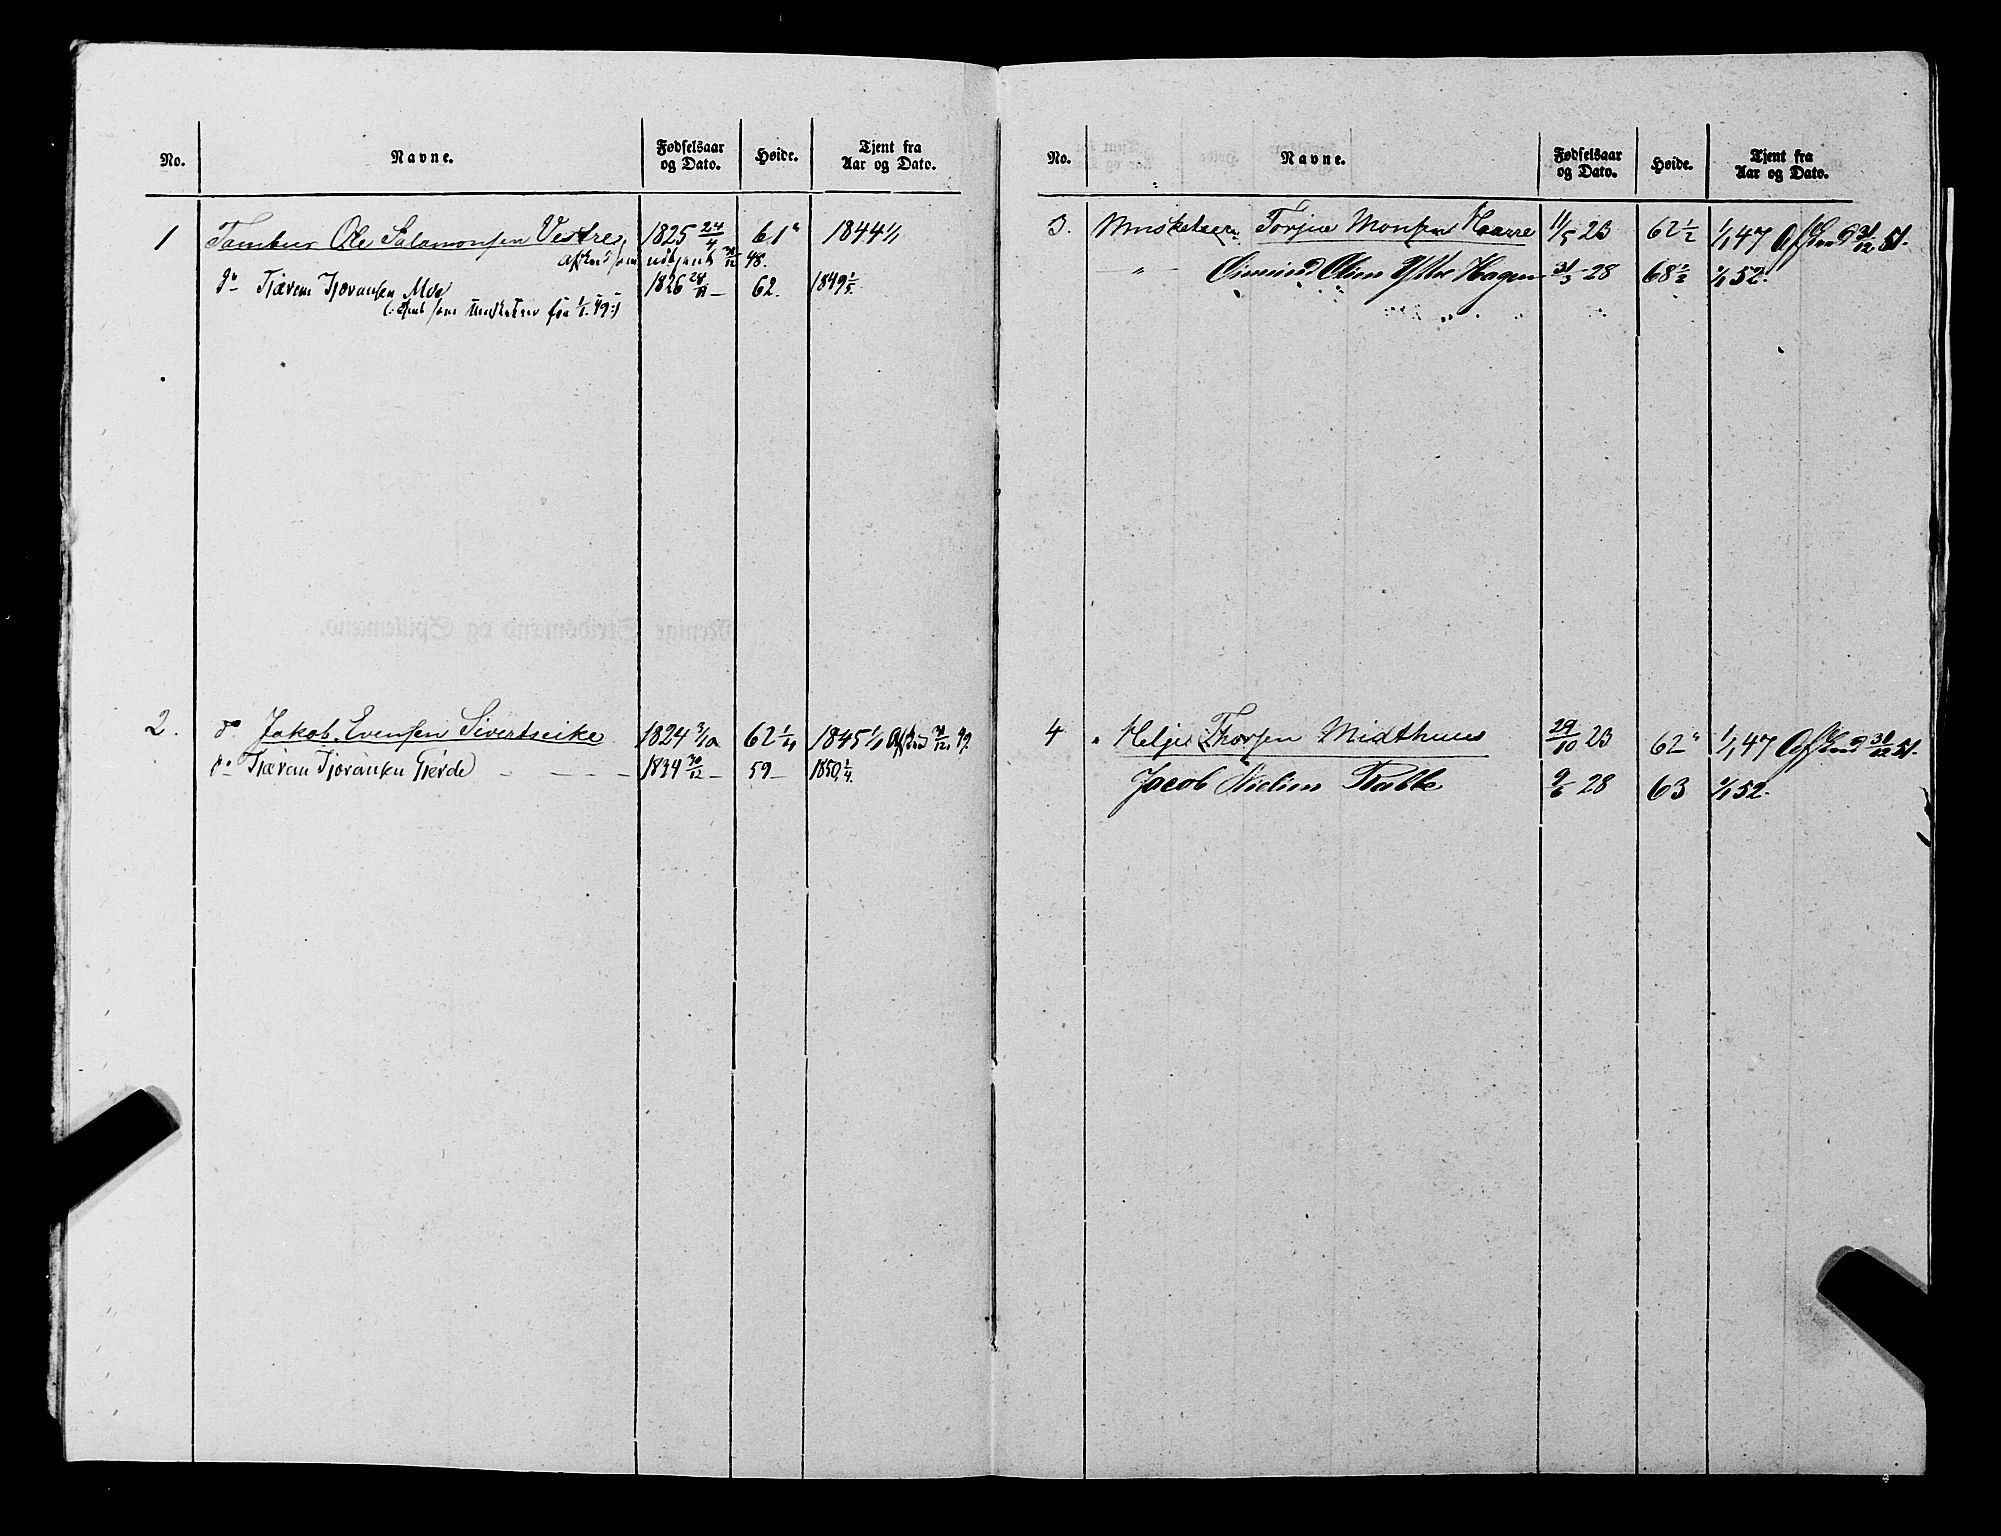 No. Navne. Fødselsaar og Dato. Høide. Tjent fra Aar og Dato.
1 Tambur Ole Salamonsen Vestre 1825 24/4 61" 1844 1/1
Afsked som udtjent 31/12 48.
do Tjæran Tjøransen Moe 1826 28/11 – 62. 1849 1/5.
(: Tjent som Musketeer fra 1/1 49 :)
2. do Jakob Evensen Sivertseike 1824 3/10 62 1/4 1845 1/1 Afsked 31/12 49.
do Tjæran Tjøransen Gjerde – – – – 1834 30/12 – 59 – 1850 1/4.
No. Navne. Fødselsaar og Dato. Høide. Tjent fra Aar og Dato.
3. Musketeer Torjus Monsen Haarre 11/5 23 62 1/2 1/1 47 Afsked 31/12 51.
– " – Olsen Ytre Hagen 31/3 28 68 1/2 1/1 52.
4 " Helje Thorsen Midthuus 29/10 23 62" 1/1 47 Afsked 31/12 51.
Jacob Nielsen Rabbe 9/6 28 63 1/1 52.